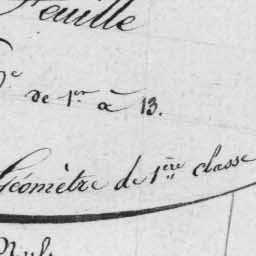 Feuille
de 1er à 13.
Géomètre de 1ère classe